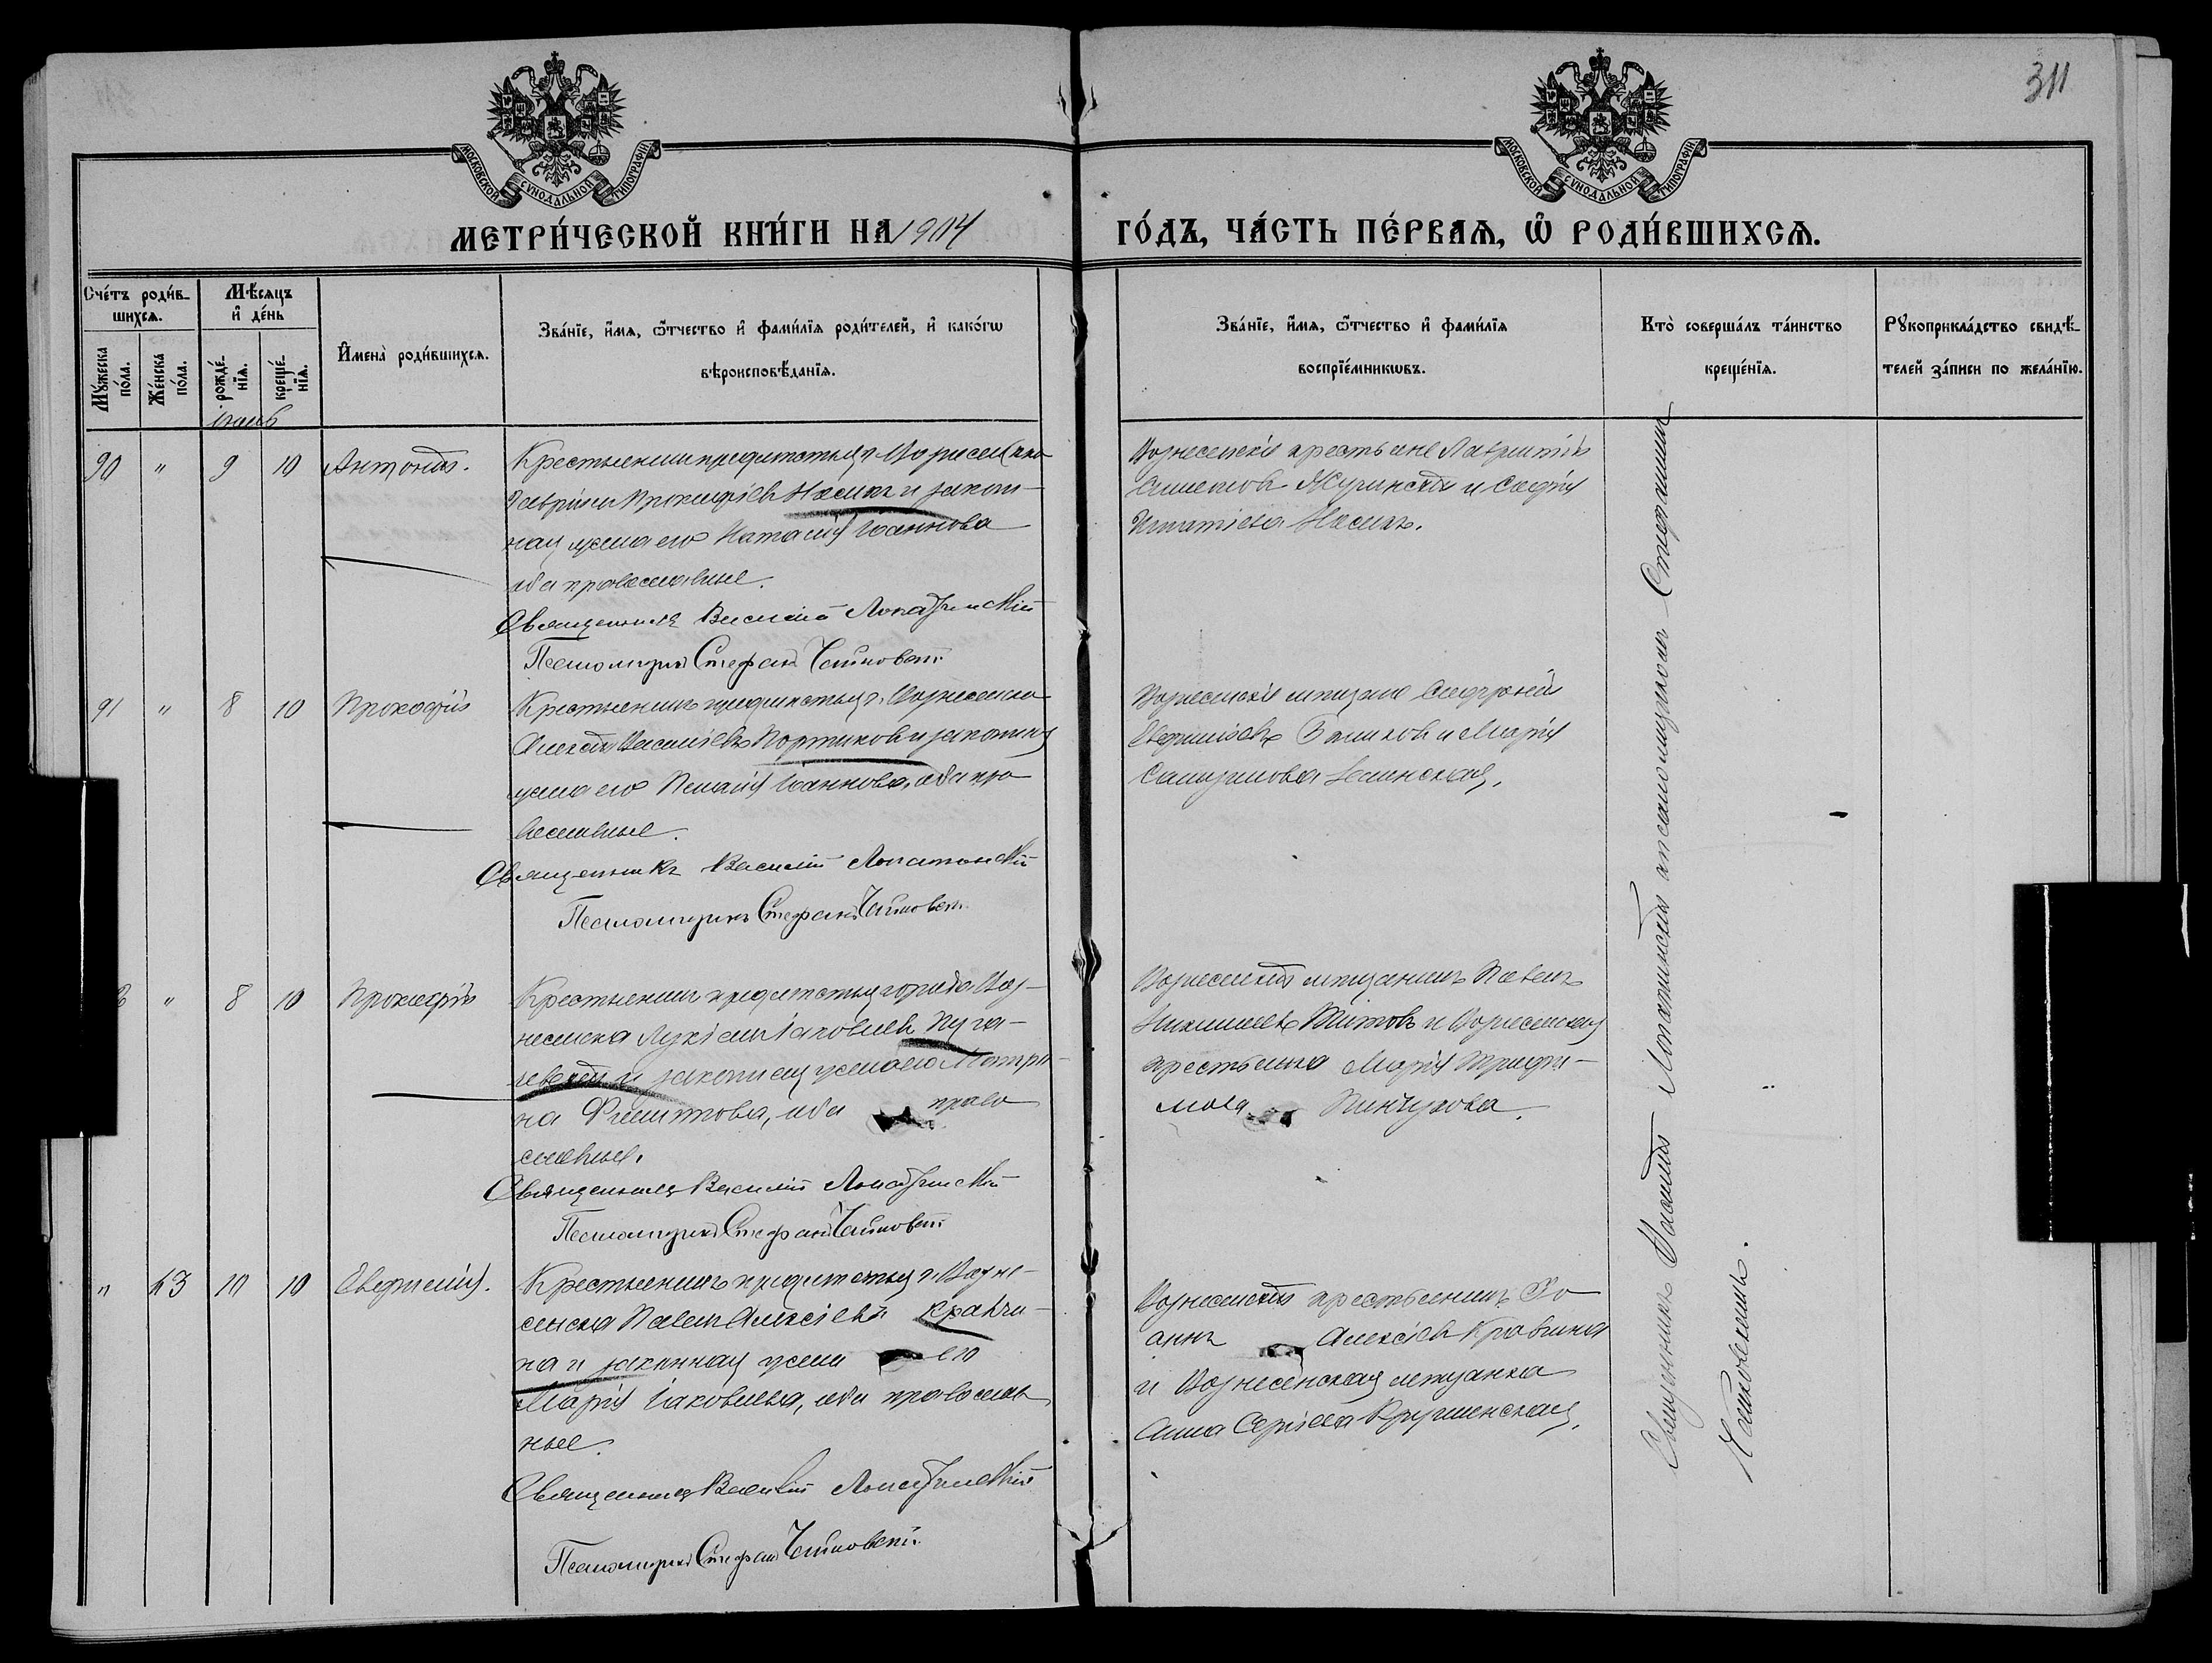 311
МОСКОВСКОЙ СѴНОДАЛЬНОЙ ТИПОГРАФІИ
МОСКОВСКОЙ СѴНОДАЛЬНОЙ ТИПОГРАФІИ
МЕТРИ́ЧЕСКОЙ КНИ́ГИ НА 1904 ГО́ДЪ, ЧА́СТЬ ПЕ́РВАѦ, Ѡ҆ РОДИ́ВШИХСѦ.
Сче́тъ роди́в-
шихсѧ.
Мꙋ́жеска по́ла.
Же́нска по́ла.
Мѣ́сѧцъ
и҆ де́нь
рожде́-нїѧ.
креще́-нїѧ.
И҆мена̀ роди́вшихсѧ.
Зва́нїе, и҆́мѧ, ѻ҆́тчество и҆ фами́лїѧ роди́телей, и҆ како́гѡ
вѣроисповѣ́данїѧ.
Зва́нїе, и҆́мѧ, ѻ҆́тчество и҆ фами́лїѧ
воспрїе́мникѡвъ.
Кто̀ соверша́лъ та́инство
креще́нїѧ.
Рꙋкоприкла́дство свидѣ́-
телей за́писи по жела́нїю.
90 " 9 10 Антоній.
Крестьянинъ предместья г. Вознесенска
Гавріилъ Прокофіевъ и закон-
ная жена его Наталія Іоаннова
оба православные.
Священникъ Василій Лопатинскій
Псаломщикъ Стефанъ Чайковскій
Вознесенскіе крестьяне Лаврентій
и Софія
Игнатіева
91 " 8 10 Прокофій
Крестьянинъ предместья г. Вознесенска
Алексѣй Василіевъ Портиковъ и законная
жена его Пелагія Іоаннова, оба пра-
вославные.
Священникъ Василій Лопатинскій
Псаломщикъ Стефанъ Чайковскій
Вознесенскіе мещане Софроній
и Марія
" 8 10 Прокофій
Крестьянинъ предместья города Воз-
несенска Лукіанъ Іаковлевъ Пуга-
чевскій и законная жена его Матро-
на Филиппова, оба право
славные.
Священникъ Василій Лопатинскій
Псаломщикъ Стефанъ Чайковскій
Вознесенскій мещанинъ Павелъ
Титовъ и Вознесенская
крестьянка Марія Трофи-
мова Пинчукова.
" 63 10 10 Евфимія.
Крестьянинъ предместья г. Возне-
сенска Павелъ Алексіевъ Кравчи-
на и законная жена его
Марія Іаковлева, оба православ-
ные.
Священникъ Василій Лопатинскій
Псаломщикъ Стефанъ Чайковскій
Вознесенскій крестьянинъ Іо-
аннъ Алексіевъ Кравчина
и Вознесенская мещанка
Анна Сергіева Крушинская.
Священникъ Василій Лопатинскій и псаломщикомъ Стефаномъ
Чайковскимъ.